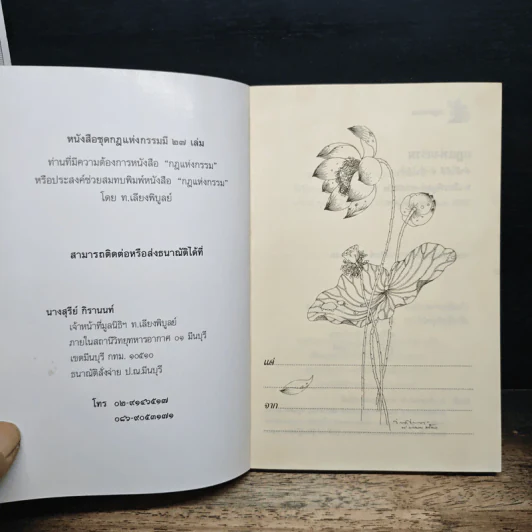 หนังสือชุดกฎแห่งกรรมมี ๒๗ เล่ม
ท่านที่มีความต้องการหนังสือ "กฎแห่งกรรม"
หรือประสงค์ช่วยสมทบพิมพ์หนังสือ "กฎแห่งกรรม"
โดย ท.เลียงพิบูลย์
สามารถติดต่อหรือส่งธนาณัติได้ที่
นางสุรีย์ กิรานนท์
เจ้าหน้าที่มูลนิธิฯ ท.เลียงพิบูลย์
ภายในสถานีวิทยุทหารอากาศ ๐๑ มีนบุรี
เขตมีนบุรี กทม. ๑๐๕๑๐
ธนาณัติสั่งจ่าย ป.ณ.มีนบุรี
โทร ๐๒-๙๑๔๖๕๑๗
๐๘๖-๙๐๕๓๑๗๑
แด่
จาก